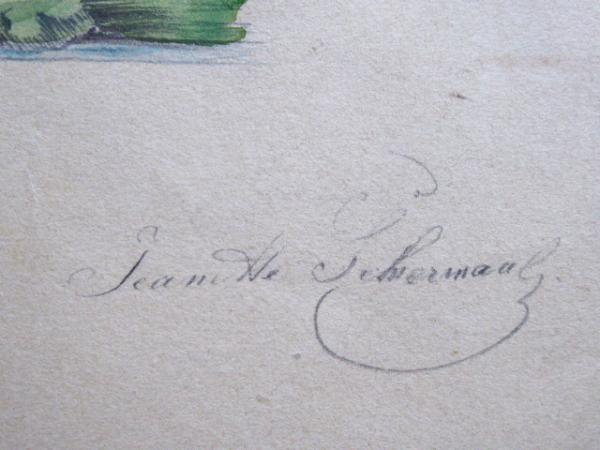 Jeanette Schermaul